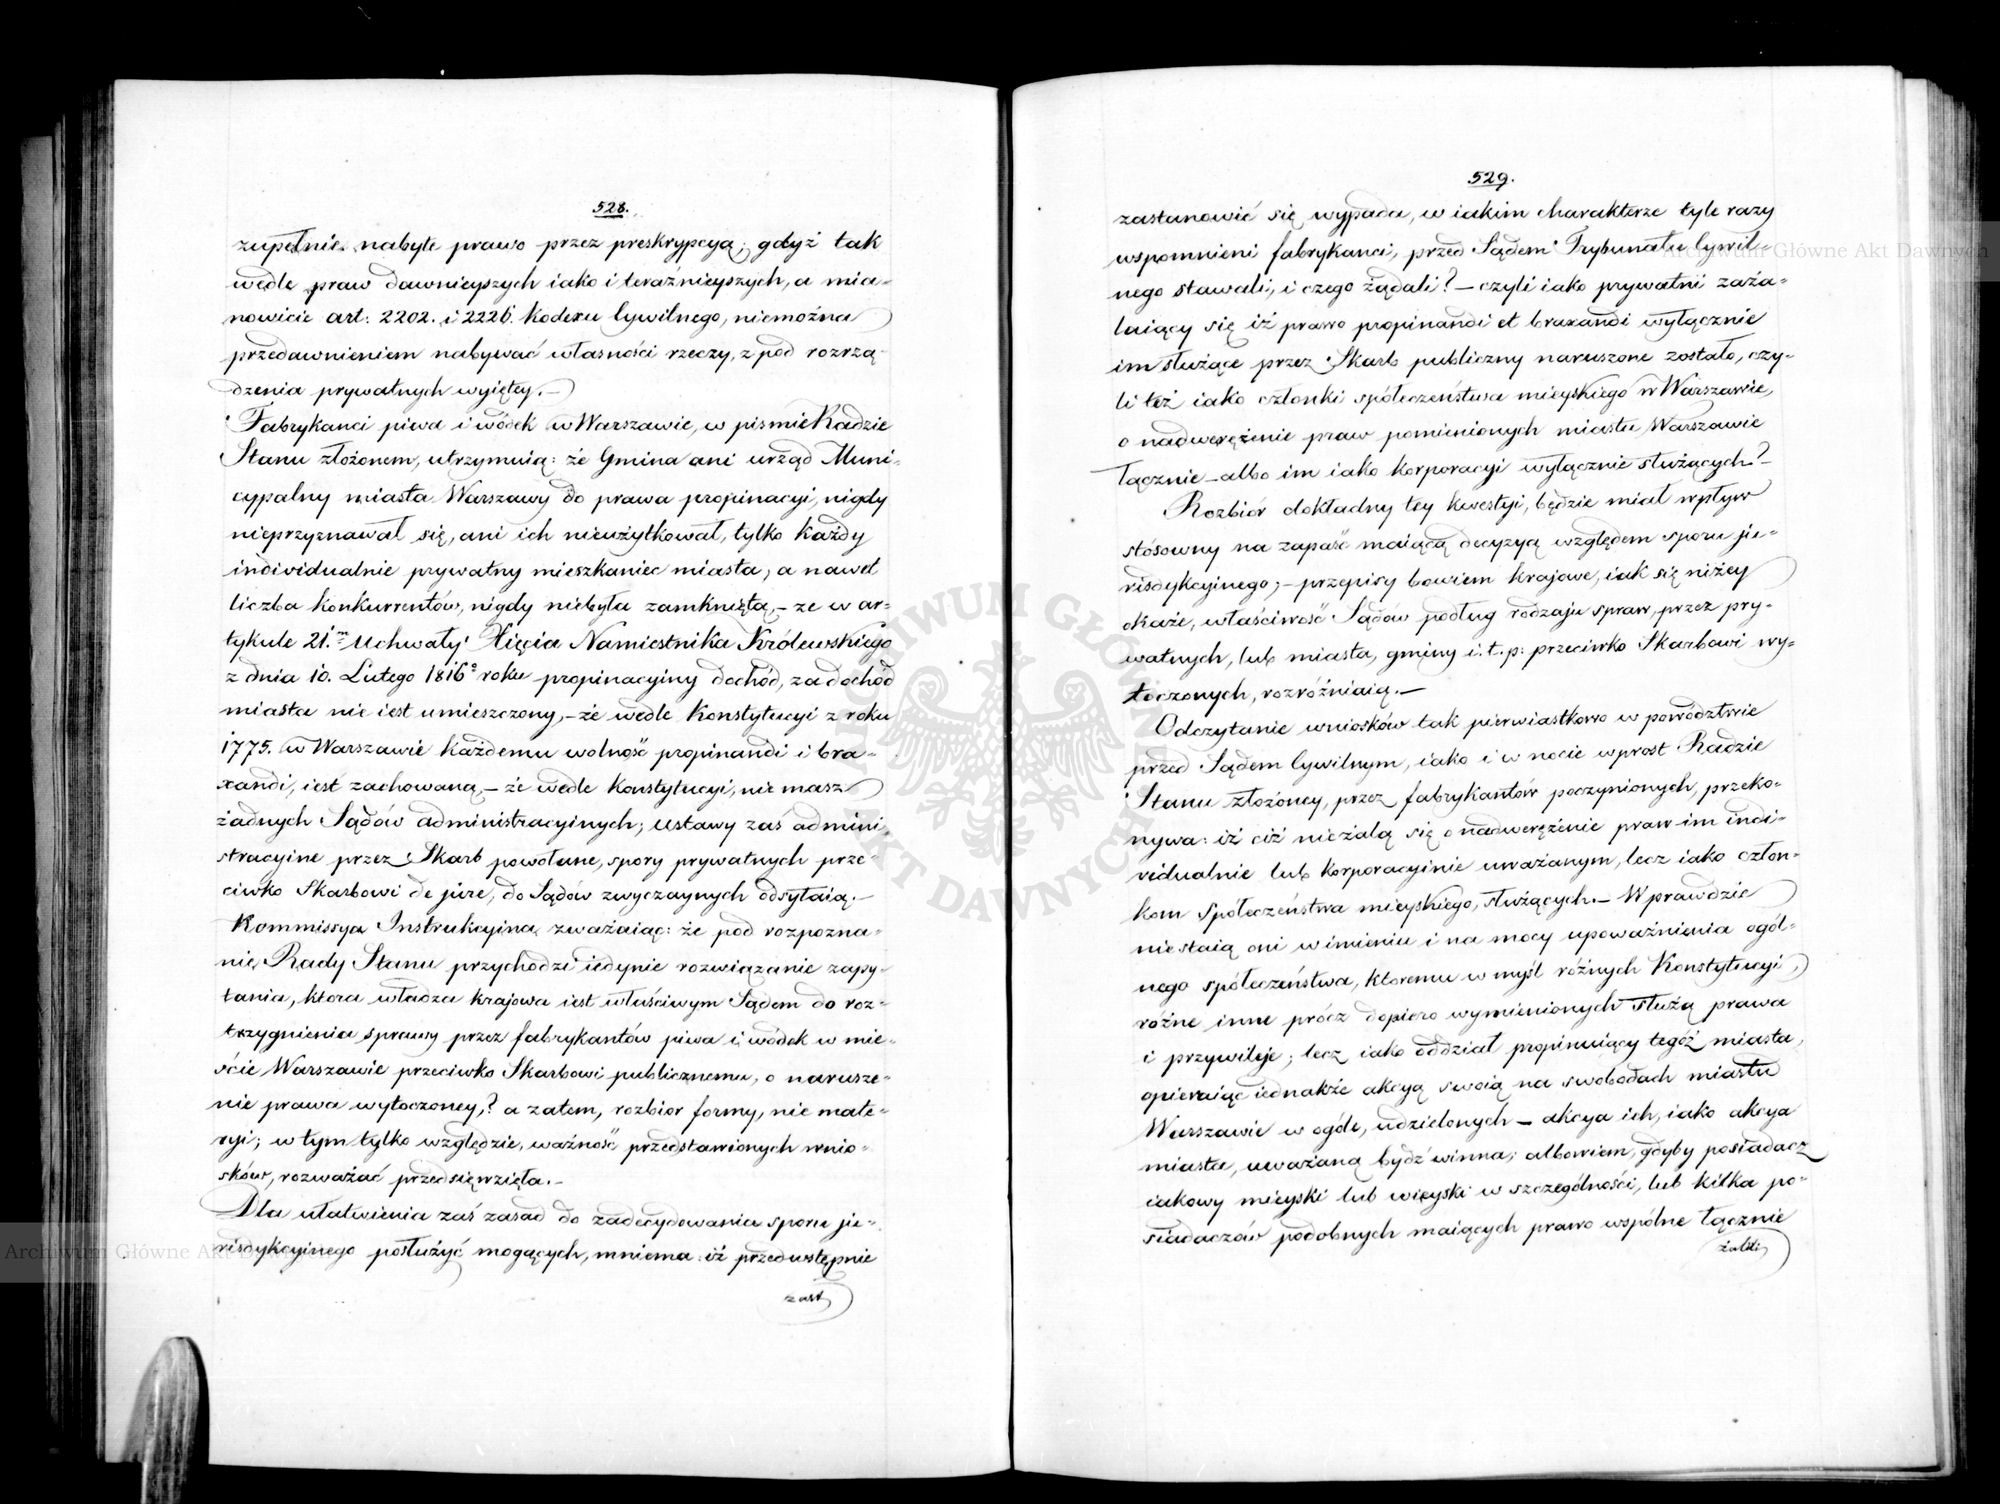 528.
zupełnie nabyte prawo przez preskrypcyą; gdyż tak
wedle praw dawnieyszych iako i teraźnieyszych, a mia-
nowicie art: 2202. i 2226. Kodexu Cywilnego, niemożna
przedawnieniem nabywać własności rzeczy, z pod rozrzą-
dzenia prywatnych wyiętey.—
Fabrykanci piwa i wódek w Warszawie, w piśmie Radzie
Stanu złożonem, utrzymuią: że Gmina ani urząd Muni-
cypalny miasta Warszawy do prawa propinacyi, nigdy
nieprzyznawał się, ani ich nieużytkował, tylko każdy
individualnie prywatny mieszkaniec miasta, a nawet
liczba konkurrentów, nigdy niebyła zamknięta,— że w ar-
tykule 21.m Uchwały Xięcia Namiestnika Królewskiego
z dnia 10. Lutego 1816o roku propinacyiny dochód, za dochód
miasta nie iest umieszczony,— że wedle Konstytucyi z roku
1775. w Warszawie każdemu wolność propinandi i bra-
xandi, iest zachowaną,— że wedle Konstytucyi, nie masz
żadnych Sądów administracyinych; ustawy zaś admini-
stracyine przez Skarb powołane, spory prywatnych prze-
ciwko Skarbowi de jure, do Sądów zwyczaynych odsyłaią.—
Kommissya Instrukcyina zważaiąc: że pod rozpozna-
nie Rady Stanu przychodzi iedynie rozwiązanie zapy-
tania, która władza kraiowa iest właściwym Sądem do roz-
trzygnienia sprawy przez fabrykantów piwa i wódek w mie-
ście Warszawie przeciwko Skarbowi publicznemu, o narusze-
nie prawa wytoczoney,? a zatem, rozbior formy, nie mate-
ryi; w tym tylko względzie, ważność przedstawionych wnio-
sków, rozważać przedsięwzięła.—
Dla ułatwienia zaś zasad do zadecydowania sporu ju-
risdykcyinego posłużyć mogących, mniema: iż przedwstępnie
zast
529.
zastanowić się wypada, w iakim charakterze tyle razy
wspomnieni fabrykanci, przed Sądem Trybunału Cywil-
nego stawali, i czego żądali? — czyli iako prywatni zaża-
laiący się iż prawo propinandi et braxandi wyłącznie
im służące przez Skarb publiczny naruszone zostało, czy-
li też iako członki społeczeństwa mieyskiego w Warszawie,
o nadweręzenie praw pomienionych miastu Warszawie
łącznie — albo im iako korporacyi wyłącznie służących? —
Rozbiór dokładny tey kwestyi, będzie miał wpływ
stósowny na zapaść maiącą decyzyą względem sporu ju-
risdykcyinego; — przepisy bowiem kraiowe, iak się niżey
okaże, właściwość Sądów podług rodzaju spraw, przez pry-
watnych, lub miasta, gminy i. t. p: przeciwko Skarbowi wy-
toczonych, rozróżniaią.—
Odczytanie wniosków tak pierwiastkowo w powództwie
przed Sądem Cywilnym, iako i w nocie wprost Radzie
Stanu złożoney, przez fabrykantów poczynionych, przeko-
nywa: iż ciż nieżalą się o nadwerężenie praw im indi-
vidualnie lub korporacyinie uważanym, lecz iako człon-
kom społeczeństwa mieyskiego, służących.— Wprawdzie
niestaią oni w imieniu i na mocy upoważnienia ogól-
nego społeczeństwa, ktoremu w myśl różnych Konstytucyi,
różne inne prócz dopiero wymienionych służą prawa
i przywileje; lecz iako oddział propinuiący tegóż miasta,
opieraiąc iednakże akcyą swoią na swobodach miastu
Warszawie w ogóle, udzielonych — akcya ich, iako akcya
miasta, uważaną bydź winna; albowiem, gdyby posiadacz
iakowy mieyski lub wieyski w szczególności, lub kilka po-
siadaczów podobnych maiących prawo wspólne łącznie
żalili
Archiwum Główne Akt Dawnych